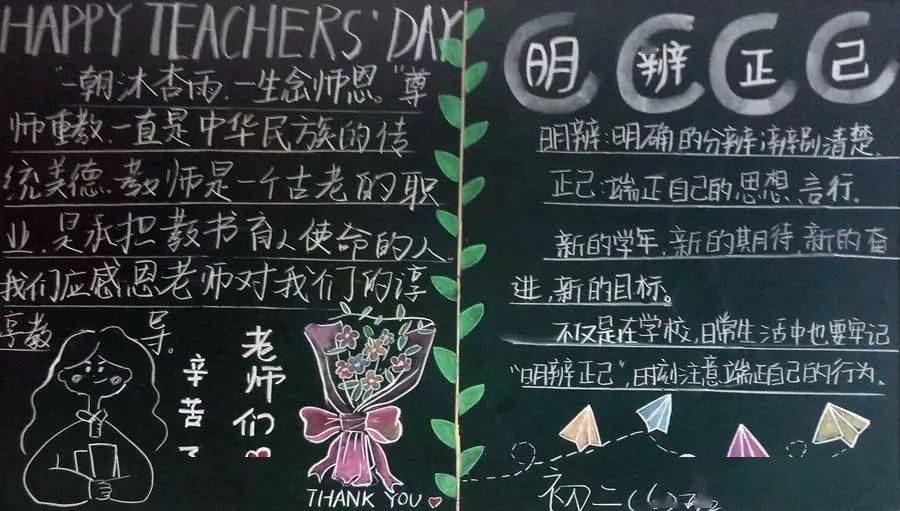 HAPPY TEACHERS' DAY
"一朝沐杏雨,一生念师恩。"尊
师重教,一直是中华民族的传
统美德,教师是一个古老的职
业,是承担教书育人使命的人。
我们应感恩老师对我们的谆
享教导。
老师们
辛苦了
THANK YOU
明辨正己
明辨:明确的分辨,辨别清楚。
正己:端正自己的思想、言行。
新的学年,新的期待,新的奋
进,新的目标。
不仅是在学校,日常生活中也要牢记
"明辨正己",时刻注意端正自己的行为。
初二(